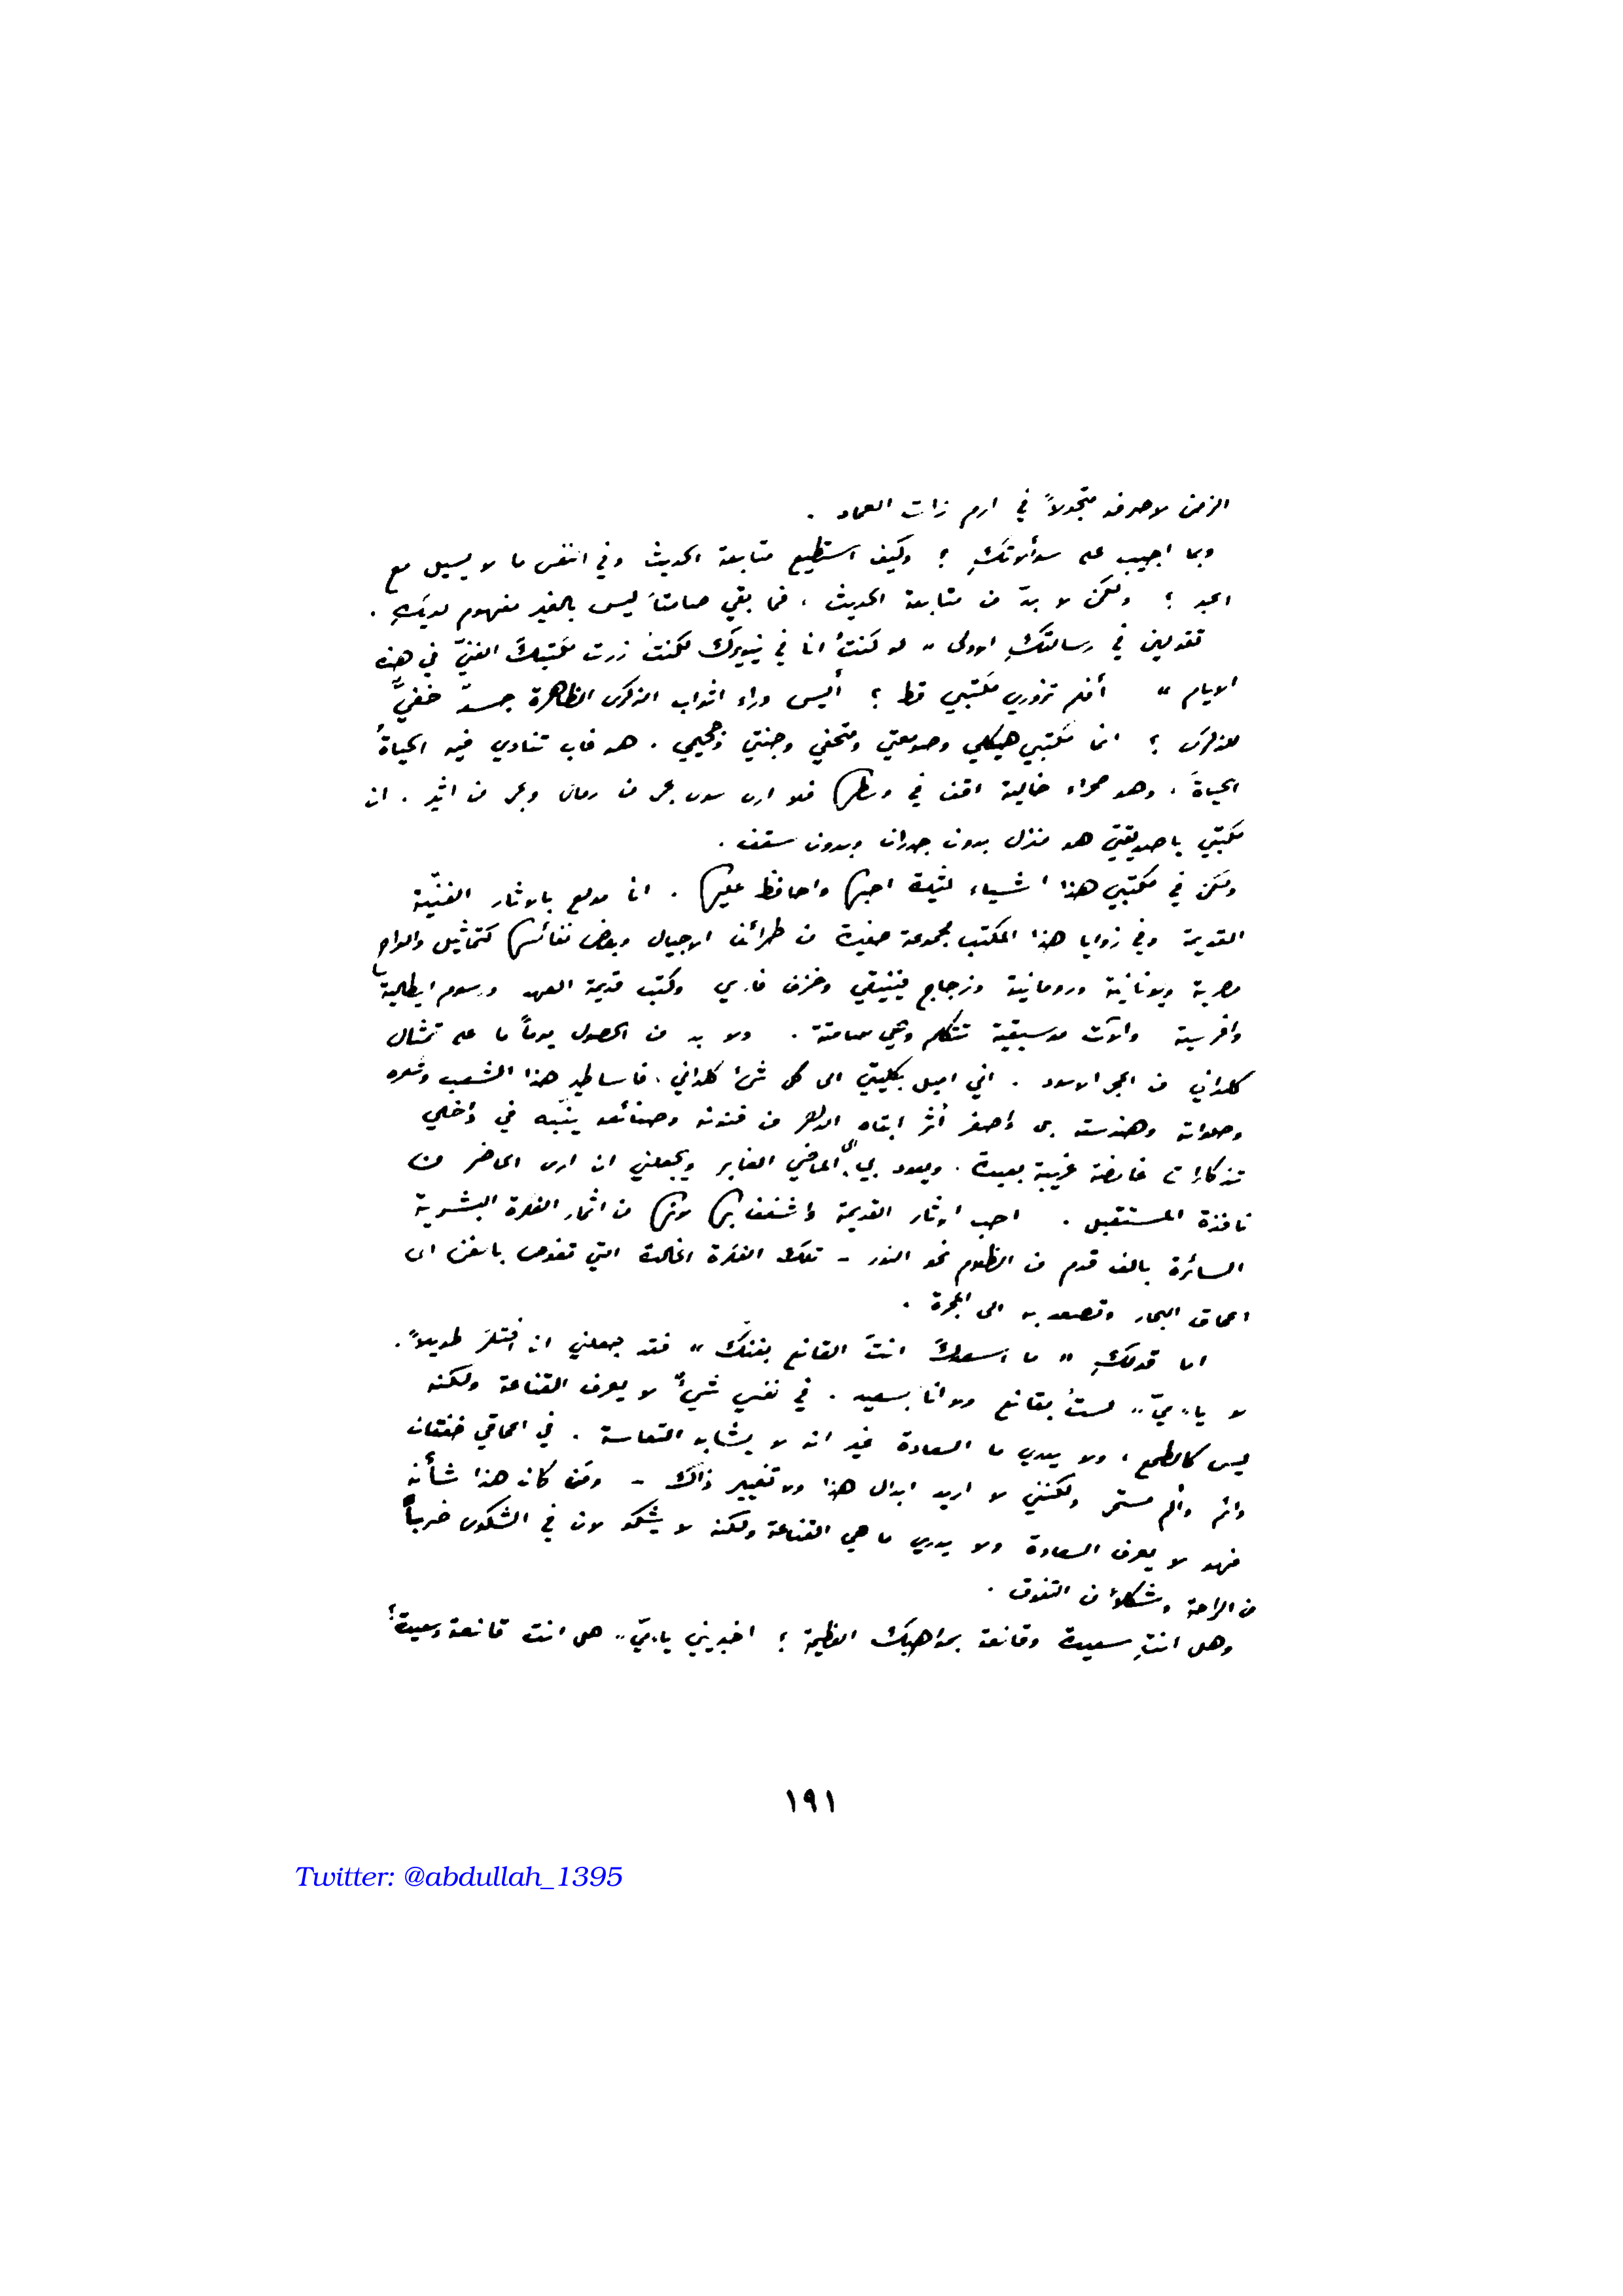 الزمن لاصرفه متجولاً في ارم ذات العماد .
وبما اجيب على سؤالاتكِ ؟ وكيف استطيع متابعة الحديث وفي النفس ما لا يسيل مع
الحبر ؟ ولكن لا بدّ من متابعة الحديث ، فما بقي صامتاً ليس بالغير مفهوم لديكِ .
تقولين في رسالتكِ الاولى „ لو كنتُ انا في نيويرك لكنتُ زرت مكتبكَ الفنيّ في هذه
الايام “ أفلم تزوري مكتبي قط ؟ أليس وراء اثواب الذكرى الظاهرة جسدٌ خفيٌّ
للذكرى ؟ انما مكتبي هيكلي وصومعتي ومتحفي وجنتي وجحيمي . هو غاب تنادي فيه الحياةُ
الحياةَ ، وهو صحراء خالية اقف في وسطها فلا ارى سوى بحر من رمال وبحر من اثير . ان
مكتبي يا صديقتي هو منزل بدون جدران وبدون سقف .
ولكن في مكتبي هذا اشياء كثيرة احبها واحافظ عليها . انا مولع بالاثار الفنيّة
القديمة وفي زوايا هذا المكتب مجموعة صغيرة من طرائف الاجيال وبعض نفائسها كتماثيل والواح
مصرية ويونانية ورومانية وزجاج فينيقي وخزف فارسي وكتب قديمة العهد ورسوم ايطالية
وافرنسية والآت موسيقية تتكلم وهي صامتة . ولا بد من الحصول يوماً ما على تمثال
كلداني من الحجر الاسود . اني اميل بكليتي الى كل شيء كلداني ، فاساطير هذا الشعب وشعره
وصلواته وهندسته بل واصغر أثر ابقاه الدهر من فنونه وصنائعه ينبّه في داخلي
تذكارات غامضة غريبة بعيدة . ويعود بي الى الماضي الغابر ويجعلني ان ارى الحاضر من
نافذة المستقبل . احب الاثار القديمة واشغف بها لانها من اثمار الفكرة البشرية
السائرة بالف قدم من الظلام نحو النور - تلك الفكرة الخالدة التي تغوص بالفن الى
اعماق البحار وتصعد به الى المجرة .
اما قولكِ „ ما اسعدكَ انتَ القانع بفنكَ “ فقد جعلني ان افتكر طويلاً .
لا يا „ميّ“ لستُ بقانع ولا انا بسعيد . في نفسي شيءٌ لا يعرف القناعة ولكنه
ليس كالطمع ، ولا يدري ما السعادة غير انه لا يشابه التعاسة . في اعماقي خفقان
دائم وألم مستمر ولكنني لا اريد ابدال هذا ولا تغيير ذاك - ومَن كان هذا شأنه
فهو لا يعرف السعادة ولا يدري ما هي القناعة ولكنه لا يشكو لان في الشكوى ضرباً
من الراحة وشكلاً من التفوق .
وهل انتِ سعيدة وقانعة بمواهبك العظيمة ؟ اخبريني يا „ميّ“ هل انت قانعة وسعيدة ؟
١٩١
Twitter: @abdullah_1395